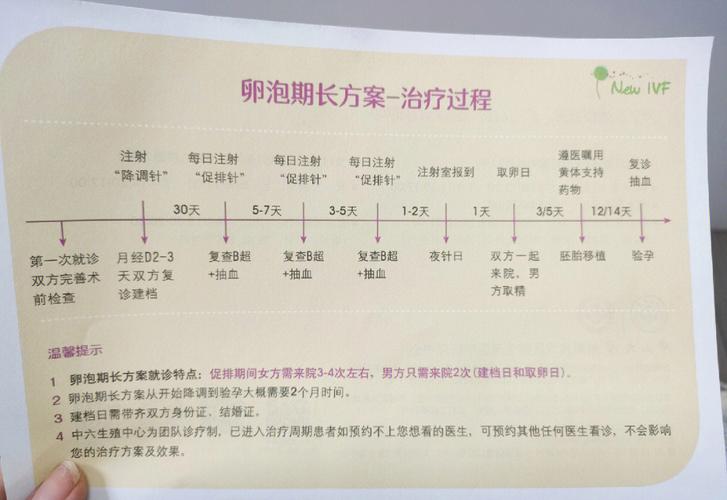 卵泡期长方案-治疗过程
New IVF
注射
“降调针”
每日注射
“促排针”
每日注射
“促排针”
每日注射
“促排针”
注射室报到
取卵日
遵医嘱用
黄体支持
药物
复诊
抽血
30天
5-7天
3-5天
1-2天
1天
3/5天
12/14天
第一次就诊
双方完善术
前检查
月经D2-3
天双方复
诊建档
复查B超
+抽血
复查B超
+抽血
复查B超
+抽血
夜针日
双方一起
来院，男
方取精
胚胎移植
验孕
温馨提示
1 卵泡期长方案就诊特点：促排期间女方需来院3-4次左右，男方只需来院2次（建档日和取卵日）。
2 卵泡期长方案从开始降调到验孕大概需要2个月时间。
3 建档日需带齐双方身份证、结婚证。
4 中六生殖中心为团队诊疗制，已进入治疗周期患者如预约不上您想看的医生，可预约其他任何医生看诊，不会影响
您的治疗方案及效果。